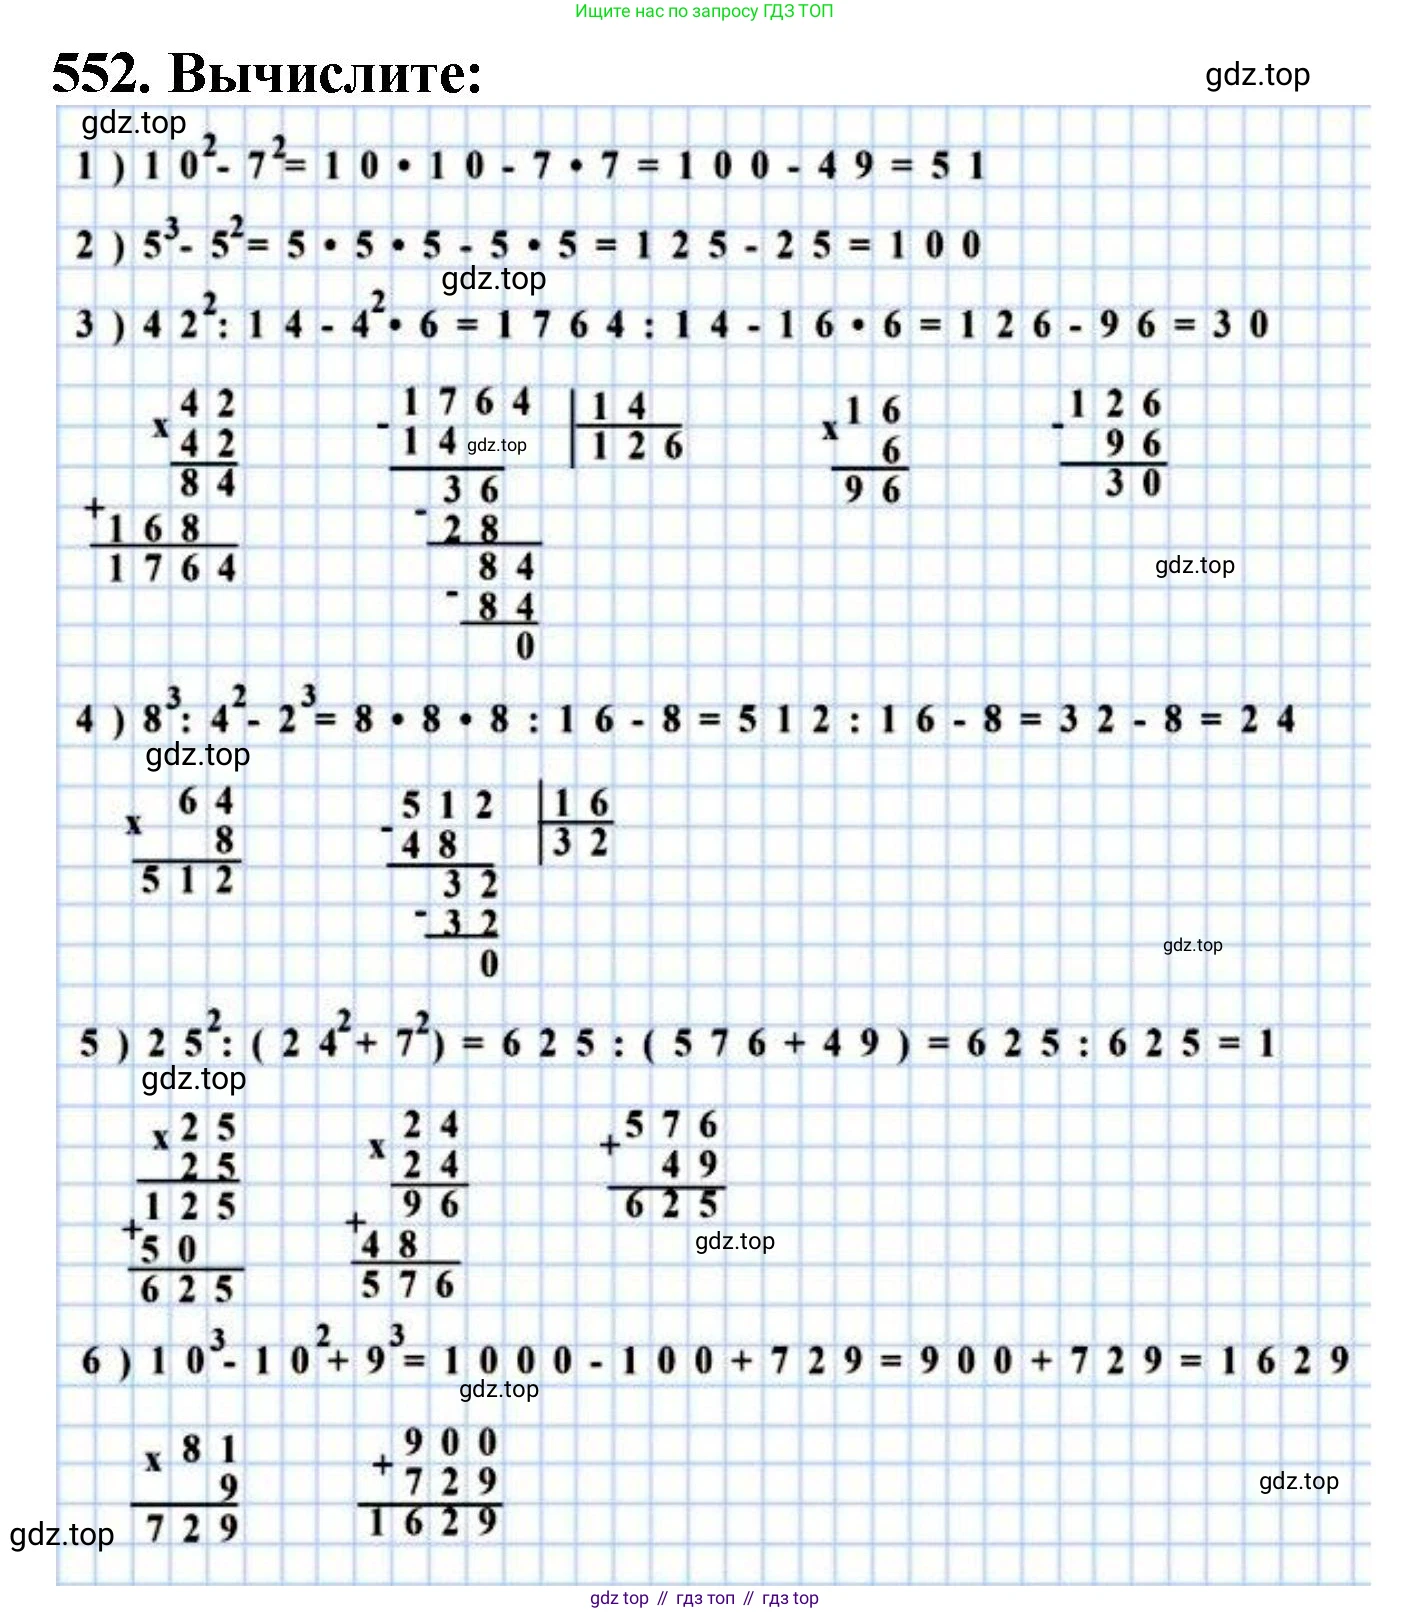 Ищите нас по запросу ГДЗ ТОП
552. Вычислите:
gdz.top
gdz.top
1) 10² - 7² = 10 • 10 - 7 • 7 = 100 - 49 = 51
2) 5³ - 5² = 5 • 5 • 5 - 5 • 5 = 125 - 25 = 100
gdz.top
3) 42² : 14 - 4² • 6 = 1764 : 14 - 16 • 6 = 126 - 96 = 30
x 42
42
84
+ 168
1764
- 1764 | 14
14 | 126
gdz.top
36
- 28
84
- 84
0
x 16
6
96
- 126
96
30
gdz.top
4) 8³ : 4² - 2³ = 8 • 8 • 8 : 16 - 8 = 512 : 16 - 8 = 32 - 8 = 24
gdz.top
x 64
8
512
- 512 | 16
48 | 32
32
- 32
0
gdz.top
5) 25² : (24² + 7²) = 625 : (576 + 49) = 625 : 625 = 1
gdz.top
x 25
25
125
+ 50
625
x 24
24
96
+ 48
576
+ 576
49
625
gdz.top
6) 10³ - 10² + 9³ = 1000 - 100 + 729 = 900 + 729 = 1629
gdz.top
x 81
9
729
+ 900
729
1629
gdz.top
gdz.top
gdz top // гдз топ // gdz top